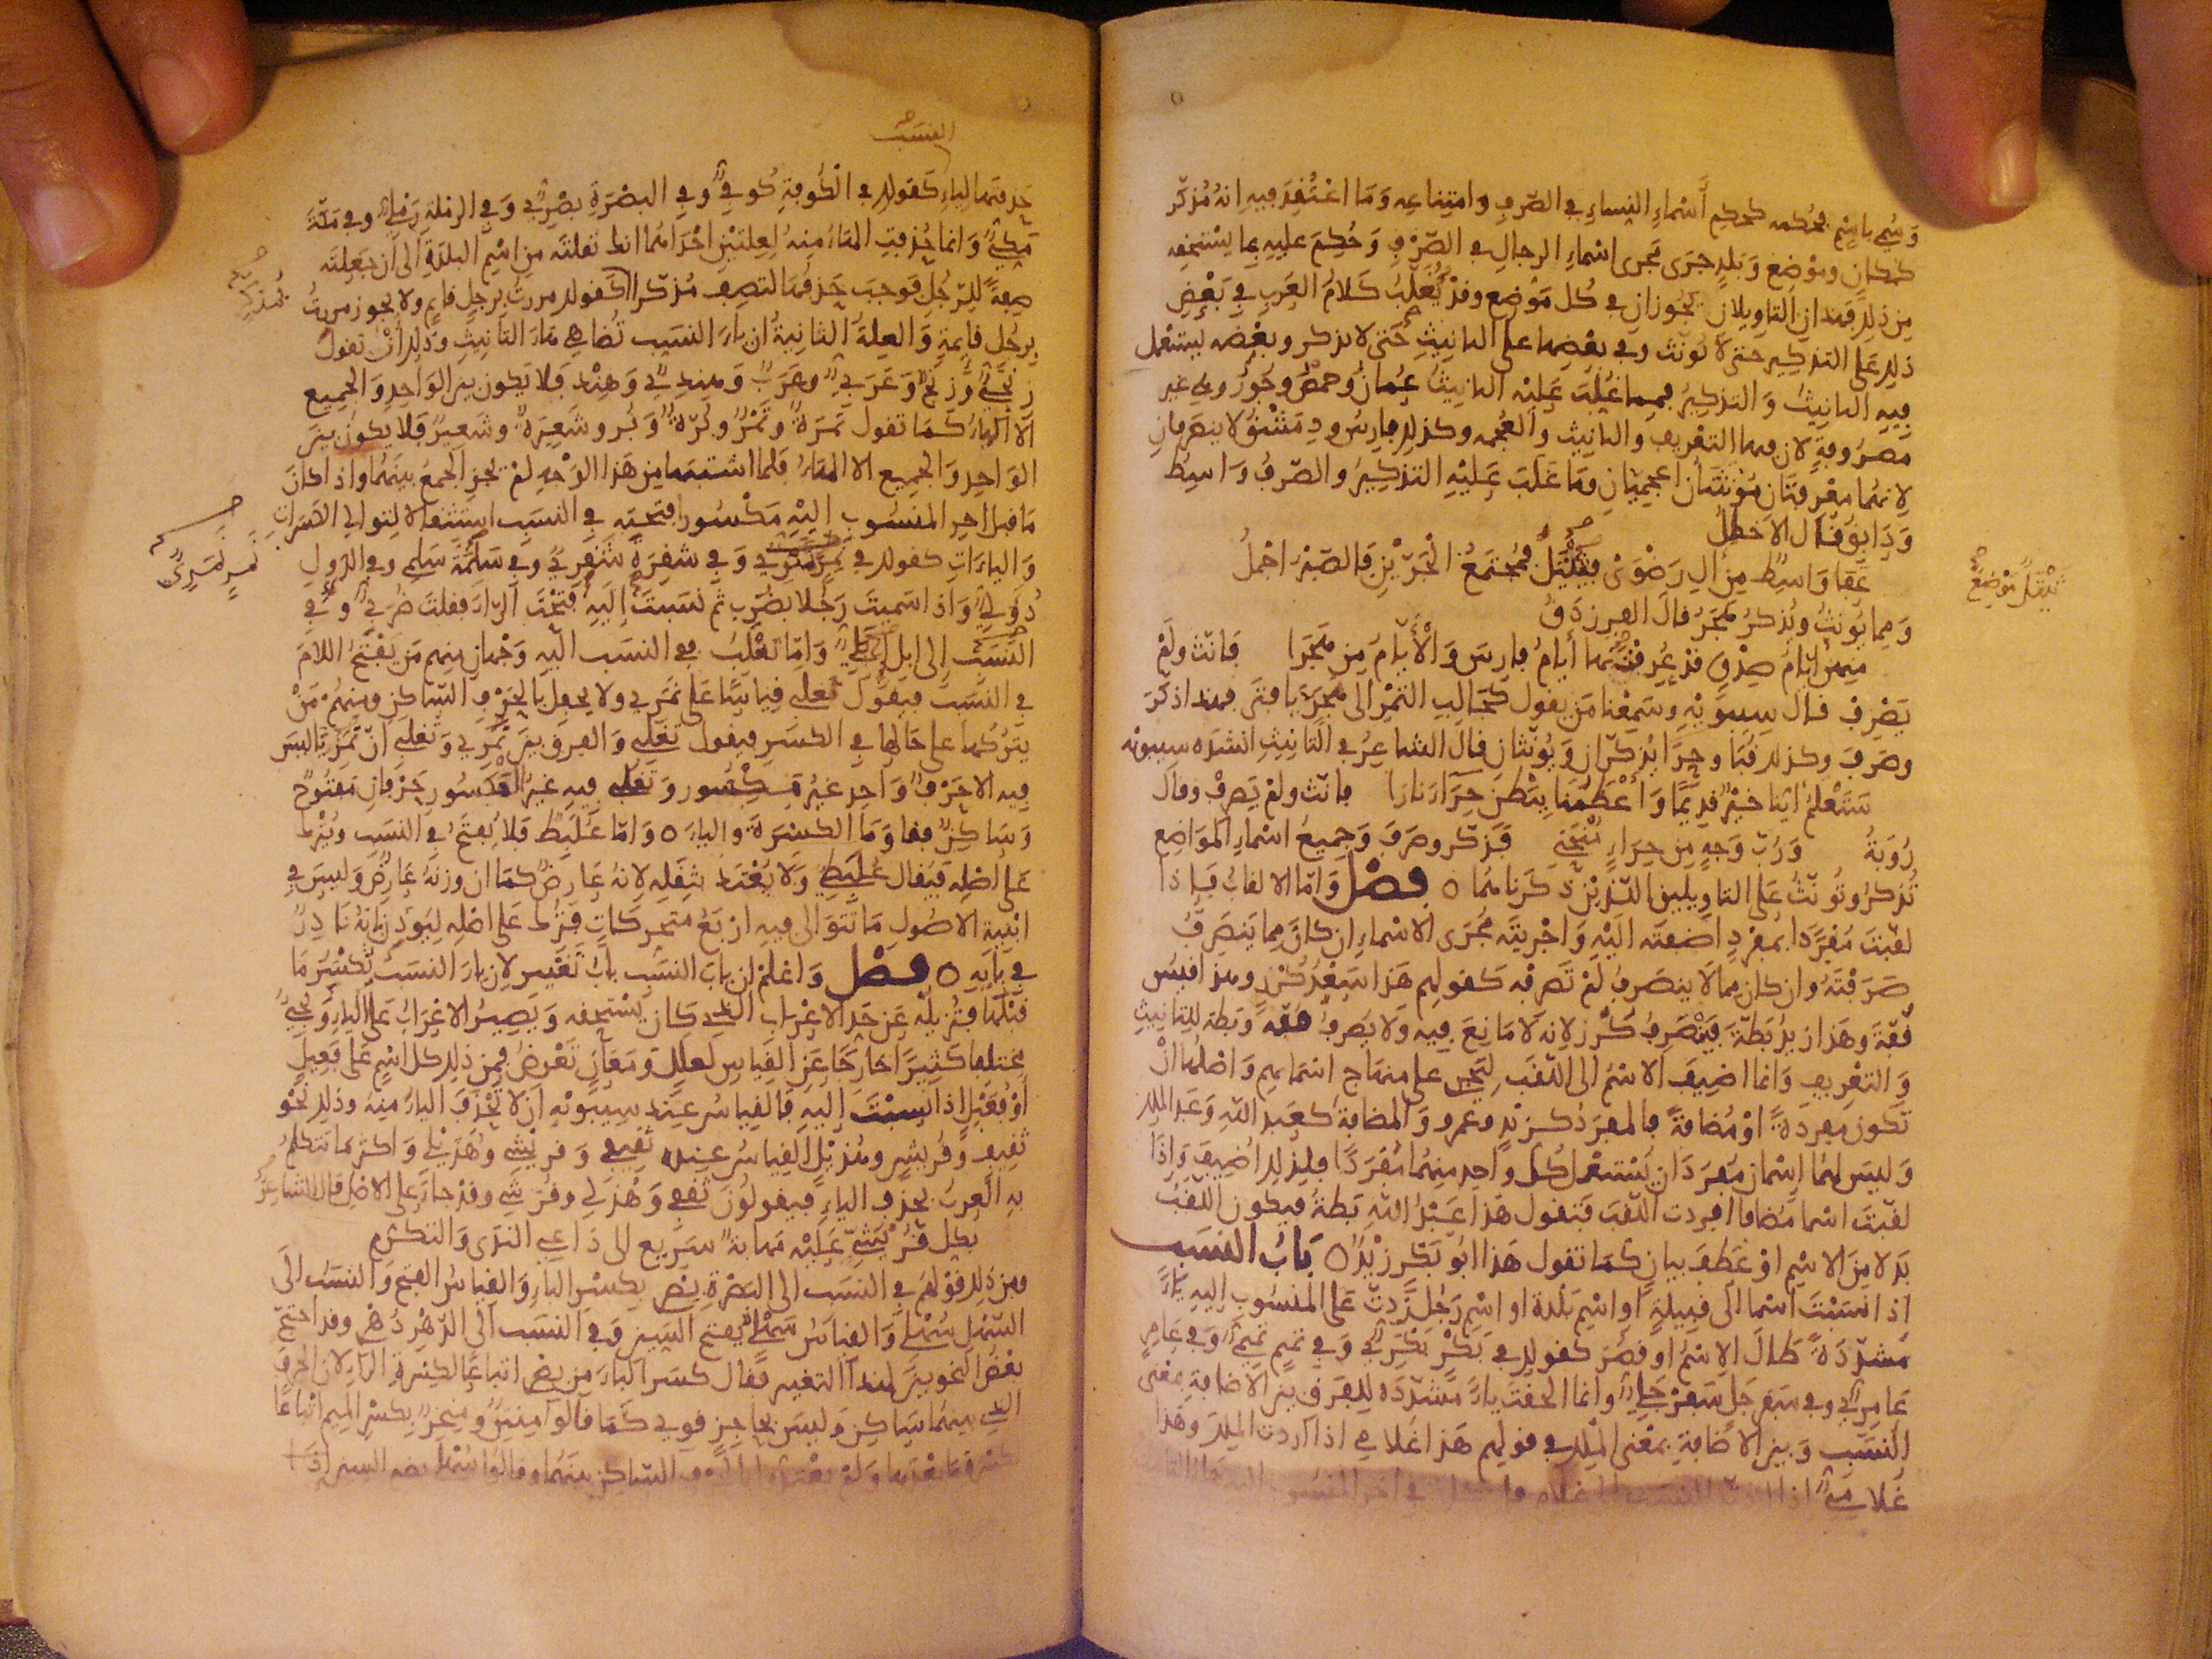 وَسُمِّيَ بِاسْمٍ فحُكمه كحكمِ أسْماءِ النِّساءِ في الصّرفِ وامتِناعِه وَمَا اعْتُقِدَ فيهِ انه مُذكّر
كمكانٍ وموْضِع وَبَلدٍ جرَى مَجرى اسْماءِ الرجالِ في الصّرْفِ وَحُكِمَ عليهِ بما يَسْتحِقه
مِن ذلِك فهذانِ التاوِيلانِ يجُوزانِ في كُل مَوْضِع وقدْ يُغَلّبُ كَلامُ العَربِ في بَعْضِ
ذلِك عَلى التذكِيرِ حتى لا يُونَث وفي بعْضِها على التانيثِ حَتى لا يذكر وبعْضه يستعْمل
فِيهِ التانيثُ وَالتذكيرُ فمِما غُلِّبَ عَليْه التانيثُ عُمانُ وحمْصُ وجُورُ وهي غير
مصرُوفةٍ لان فيها التعْريف والتانيث والعُجمه وكذلِك فارِسُ ودِمَشْقُ لا ينصَرِفانِ
لانهُما معْرِفتَان مُؤنثتَانِ اعجميّتانِ ومَا غَلَبَ عَليْهِ التذكِيرُ والصّرفُ وَاسِطُ
وَدَابِقٌ قال الاخطلُ
عَفا وَاسِطٌ مِن آلِ رَضْوَى فنَبْتَلُ فمُجتمَعُ الْحَرّيْنِ فَالصّبْرُ اجْملُ
ثَيْتَلٌ مَوْضِعٌ
وَمِما يُونثُ ويُذكرُ هَجَرُ قالَ الفرزدقُ
مِنهُنَّ أيّامُ صِدْقٍ قدْ عُرِفْتَ بها أيامُ فارِسَ وَالْأَيّامُ مِن هَجَرَا فانّث ولَمْ
يَصْرِفْ قال سِيبوَيْهِ وسَمِعْنا مَن يقول كجَالِبِ التمْرِ الى هَجَرٍ يا فتَى فهذا ذكّرَ
وصَرفَ وكذلك قُبَا وحِرَا يُذكّرانِ وَيُونّثانِ قالَ الشاعِرُ في التانيثِ انشدَه سِيبويْه
سَتَعْلمُ أيّنا خيْرٌ قدِيمًا وَأَعْظَمُنَا بِبَطْنِ حِرَآءَ نارَا فانّث ولمْ يَصرِفْ وقال
رُوبَةُ وَرُبّ وَجهٍ مِن حِرَاءٍ مُنْحَنِي فَذكّر وصَرَفَ وَجمِيعُ اسْماءِ المَوَاضِع
تُذكرُ وتُونّثُ عَلى التاوِيلينِ اللّذَيْنِ ذكرْناهُما ه فصْل وَامّا الالقابُ فإذا
لقبْتَ مُفْرَدًا بمفْرَدٍ اضفتَه اليْهِ وَاجْريتَه مُجرَى الاسْماءِ ان كانَ مِما يَنصَرِفُ
صَرَفْتَهُ وان كان مما لا ينصَرفُ لمْ تَصرِفه كقولِهم هَذا سَعِيدُ كُرْزٍ وهذا قيْسُ
قُفّةَ وهَذا زيدُ بَطّةَ فيَنْصَرِفُ كُرْز لانه لا مَانِعَ فيهِ وَلا يَصرِفُ قفّة وَبَطّة للتانيثِ
وَالتعْريفِ وَانما اضيفَ الاسْمُ الى اللّقَبِ ليَجري على منهاج اسْمايهم وَاصْلها انْ
تكون مفرَدَةً اوْ مُضافةً فالمفرَدُ كزيْدٍ وعمرو وَالمضافةُ كعَبدِ اللهِ وَعَبدِ الملِكِ
وَليسَ لهُما اسْمانِ مُفرَدَانِ يُسْتعْمل كلّ واحدٍ منهُما مُفْرَدًا فلِذلِك اضيفَ وَاذَا
لقّبتَ اسْمًا مُضَافا افردتَ اللّقبَ فتقول هَذا عَبْدُ اللهِ بَطةُ فيكون اللّقبُ
بَدلا مِن الاسْمِ اوْ عَطفَ بيانٍ كما تقول هَذا ابُو بَكْرٍ زيْدٌ ه بَابُ النسَبِ
اذا نسَبْتَ اسْما الى قبيلةٍ او اسْمِ بَلدَة او اسْمِ رَجُل زِدتَّ عَلى المنسُوبِ اليْهِ ياءً
مُشدّدَةً طَال الاسْمُ او قصُرَ كقولِك في بَكْرٍ بَكْرِيٌّ وَفي تمِيمٍ تمِيمِيٌّ وَفي عَامِرٍ
عَامِرِيٌّ وفي سَفرْجَلٍ سَفرْجَلِيٌّ وانما الحقتَ ياءً مُشدّدَة للفرْقِ بَيْن الاضافةِ بمعْنى
النسَبِ وَبين الاضافةِ بمعْنى الملْكِ في قولِهم هَذا غُلامِي اذا اردتَ الملْكَ وهَذا
غُلامِيٌّ اذا اردتّ النسَب الى الغُلامِ
النسَبُ
حذفتها لياءٍ كقولِك في الكُوفةِ كُوفِيٌّ وفي البصْرَةِ بصْرِيٌّ وَفي الرمْلةِ رَمْلِيٌّ وفي مَكّةَ
مَكّيٌّ وَانما حُذِفتِ الهَاءُ مِنهُ لِعلتيْنِ احْدَاهُما انك نقلتَه مِن اسْمِ البلدَةِ الى أن جَعلتَه
صِفةً للرّجُلِ فوَجبَ حَذفُها لتصِفَ مُذكّرا كقولِك مررتُ برجلٍ قايمٍ ولا يجوز مررتُ
بِمُذَكَّرٍ
برجُلٍ قايمةٍ وَالعلةُ الثانيةُ ان يَاءَ النسَبِ تُضاهي هَاءَ التانيثِ وذلِك أنْ تقول
زنجيٌّ وَزنجٌ وَعَرَبيٌّ وعَرَبٌ وَهِنديٌّ وَهِنْد فلا يَكون بين الوَاحِدِ وَالجميع
الّا اليَاءُ كمَا تقول تمْرَةٌ وتمْرٌ وبُرّةٌ وَبُر وشَعِيرَةٌ وشَعيرٌ فلا يكُونُ بَينَ
الوَاحِدِ وَالجميع الا الهَاءُ فلما اشتبها مِن هَذا الوَجْهِ لمْ يجُزِ الجمعُ بينَهُما واذا كانَ
مَا قبل آخِرِ المنسُوبِ اليْهِ مَكْسُورا فتَحتَه في النسَبِ اسْتِثقالًا لِتوالي الكسَراتِ
وَالياءَاتِ كقولِك في نَمِرٍ نَمَرِيّ وَفي شَقِرَةٍ شَقَرِيٌّ وفي سَلِمَةَ سَلَمِي وفي الدُّولِ
نَمِرٍ نَمَرِيٌّ
دُوَلِيٌّ وَاذا سَمّيتَ رَجُلا بضُرِبَ ثم نسَبتَ إليه فتحْتَ الرّاءَ فقلتَ ضُرَبِيٌّ وفي
النسَبِ إلى إبِل إبَلِيٌّ وَامّا تَغْلِبُ ففي النسَبِ اليْهِ وَجْهانِ مِنهم مَن يَفْتحُ اللامَ
في النسَبِ فيقولُ تغلَبي قِياسًا عَلى نَمَرِيّ ولا يحفل بالحرْفِ السّاكِنِ ومِنهُمْ مَنْ
يَتركها على حَالِها في الكسْرِ فيقول تغلِبي وَالفرق بين نَمَرِيٍّ وَتغلِبي انّ نَمِر ليسَ
فيهِ الا حَرْفٌ وَاحِد غيرُ مَكْسُور وَتغلب فيه غيرُ المكسُورِ حَرْفانِ مفتُوحٌ
وَسَاكِنٌ فقاوَمَا الكسْرَةَ والياءَ ه وَامّا عُلَبِطٌ فلا يُفتَحُ في النسَبِ ويُتْركُ
عَلى اصْلِه فيُقال عُلَبِطِيّ وَلا يُعْتدّ بثِقَلِهِ لانهُ عَارِضٌ كما ان وزنَهُ عَارِضٌ وَليسَ في
ابْنِيةِ الاصُولِ مَا تتَوَالى فيهِ ارْبَعُ متحركاتٍ فتُرِك عَلى اصْلِه ليُوذِنَ بانه نَادِرٌ
في بابِه ه فصْل وَاعْلمْ ان بابَ النسَبِ بابُ تَغْيِير لان ياءَ النسَبِ تَكْسِرُ مَا
قبْلَها فتُزيلُه عَن حَدّ الاعْرابِ الذي كان يَسْتحقه وَيَصِيرُ الاعْرَابُ عَلى الياءِ وَيجيءُ
مختلِفا كثِيرًا خارِجًا عَنِ القِياسِ لعِلَلٍ وَمَعَانٍ تَعْرِضُ فمِن ذلِك كل اسْمٍ عَلى فَعِيلٍ
أوْ فُعَيْلٍ اذا نسَبْتَ اليهِ فالقِياسُ عِند سِيبويْهِ ان لا تُحْذفَ الياءُ منهُ وذلِك نحْو
ثقِيفٍ وَقُريْشٍ وهُذيْلٍ القياسُ عِنده ثقِيفي وَقريْشي وهُذيْلي وَاكثرُ ما تتكلمُ
بهِ العربُ بحذفِ الياءِ فيقولُونَ ثقَفي وَهُذلي وقُرَشي وقد جاءَ على الاصْلِ قالَ الشاعِرُ
بِكل قُرَيْشِيٍّ عَليْه مَهابةٌ سَرِيع الى دَاعِي النّدَى وَالتكرّمِ
ومِن ذلِك قولهُم في النسَبِ الى البَصْرَةِ بِصْرِي بِكسْرِ الباءِ وَالقِياسُ الفتح وَالنسَبُ الى
السّهْلِ سُهْليّ وَالقياسُ سَهْلِيٌّ بفتح السِينِ وَفي النسَبِ الى الدّهْرِ دُهْرِي وقد احتجّ
بَعْضُ النحويينَ لهذا التغييرِ فقال كسَر الباءَ مِن بِصري اتباعًا لكسْرةِ الرّاءِ لان الحرفَ
الذي بينهُما سَاكِن وَليسَ بحاجزٍ قويّ كمَا قالوا مِنْتِنٌ ومِنْخِرٌ بكسْرِ المِيمِ اتباعًا
لكسرة مَا بعْدَها وَلمْ يعْتدّوا بالحرْفِ السّاكِنِ بينَهُما وقالُوا سُهْلي بضم السِينِ